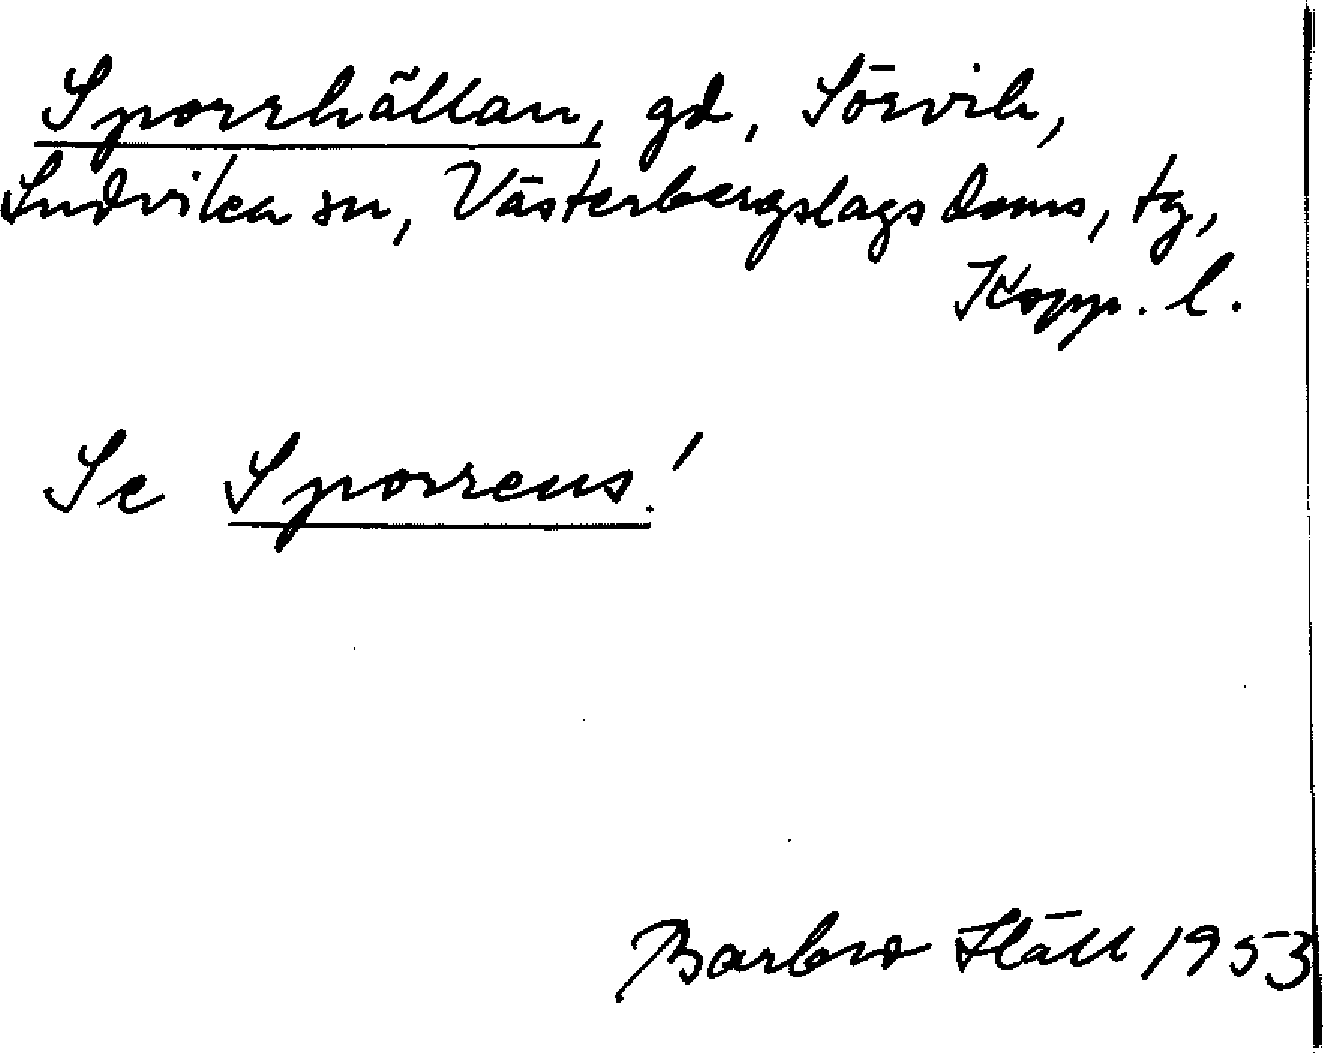 Sporrhällan, gd, Sörvik,
Ludvika sn, Västerbergslags doms, tg,
Kopp. l.
Se Sporrens!
Barbro Häll 1953